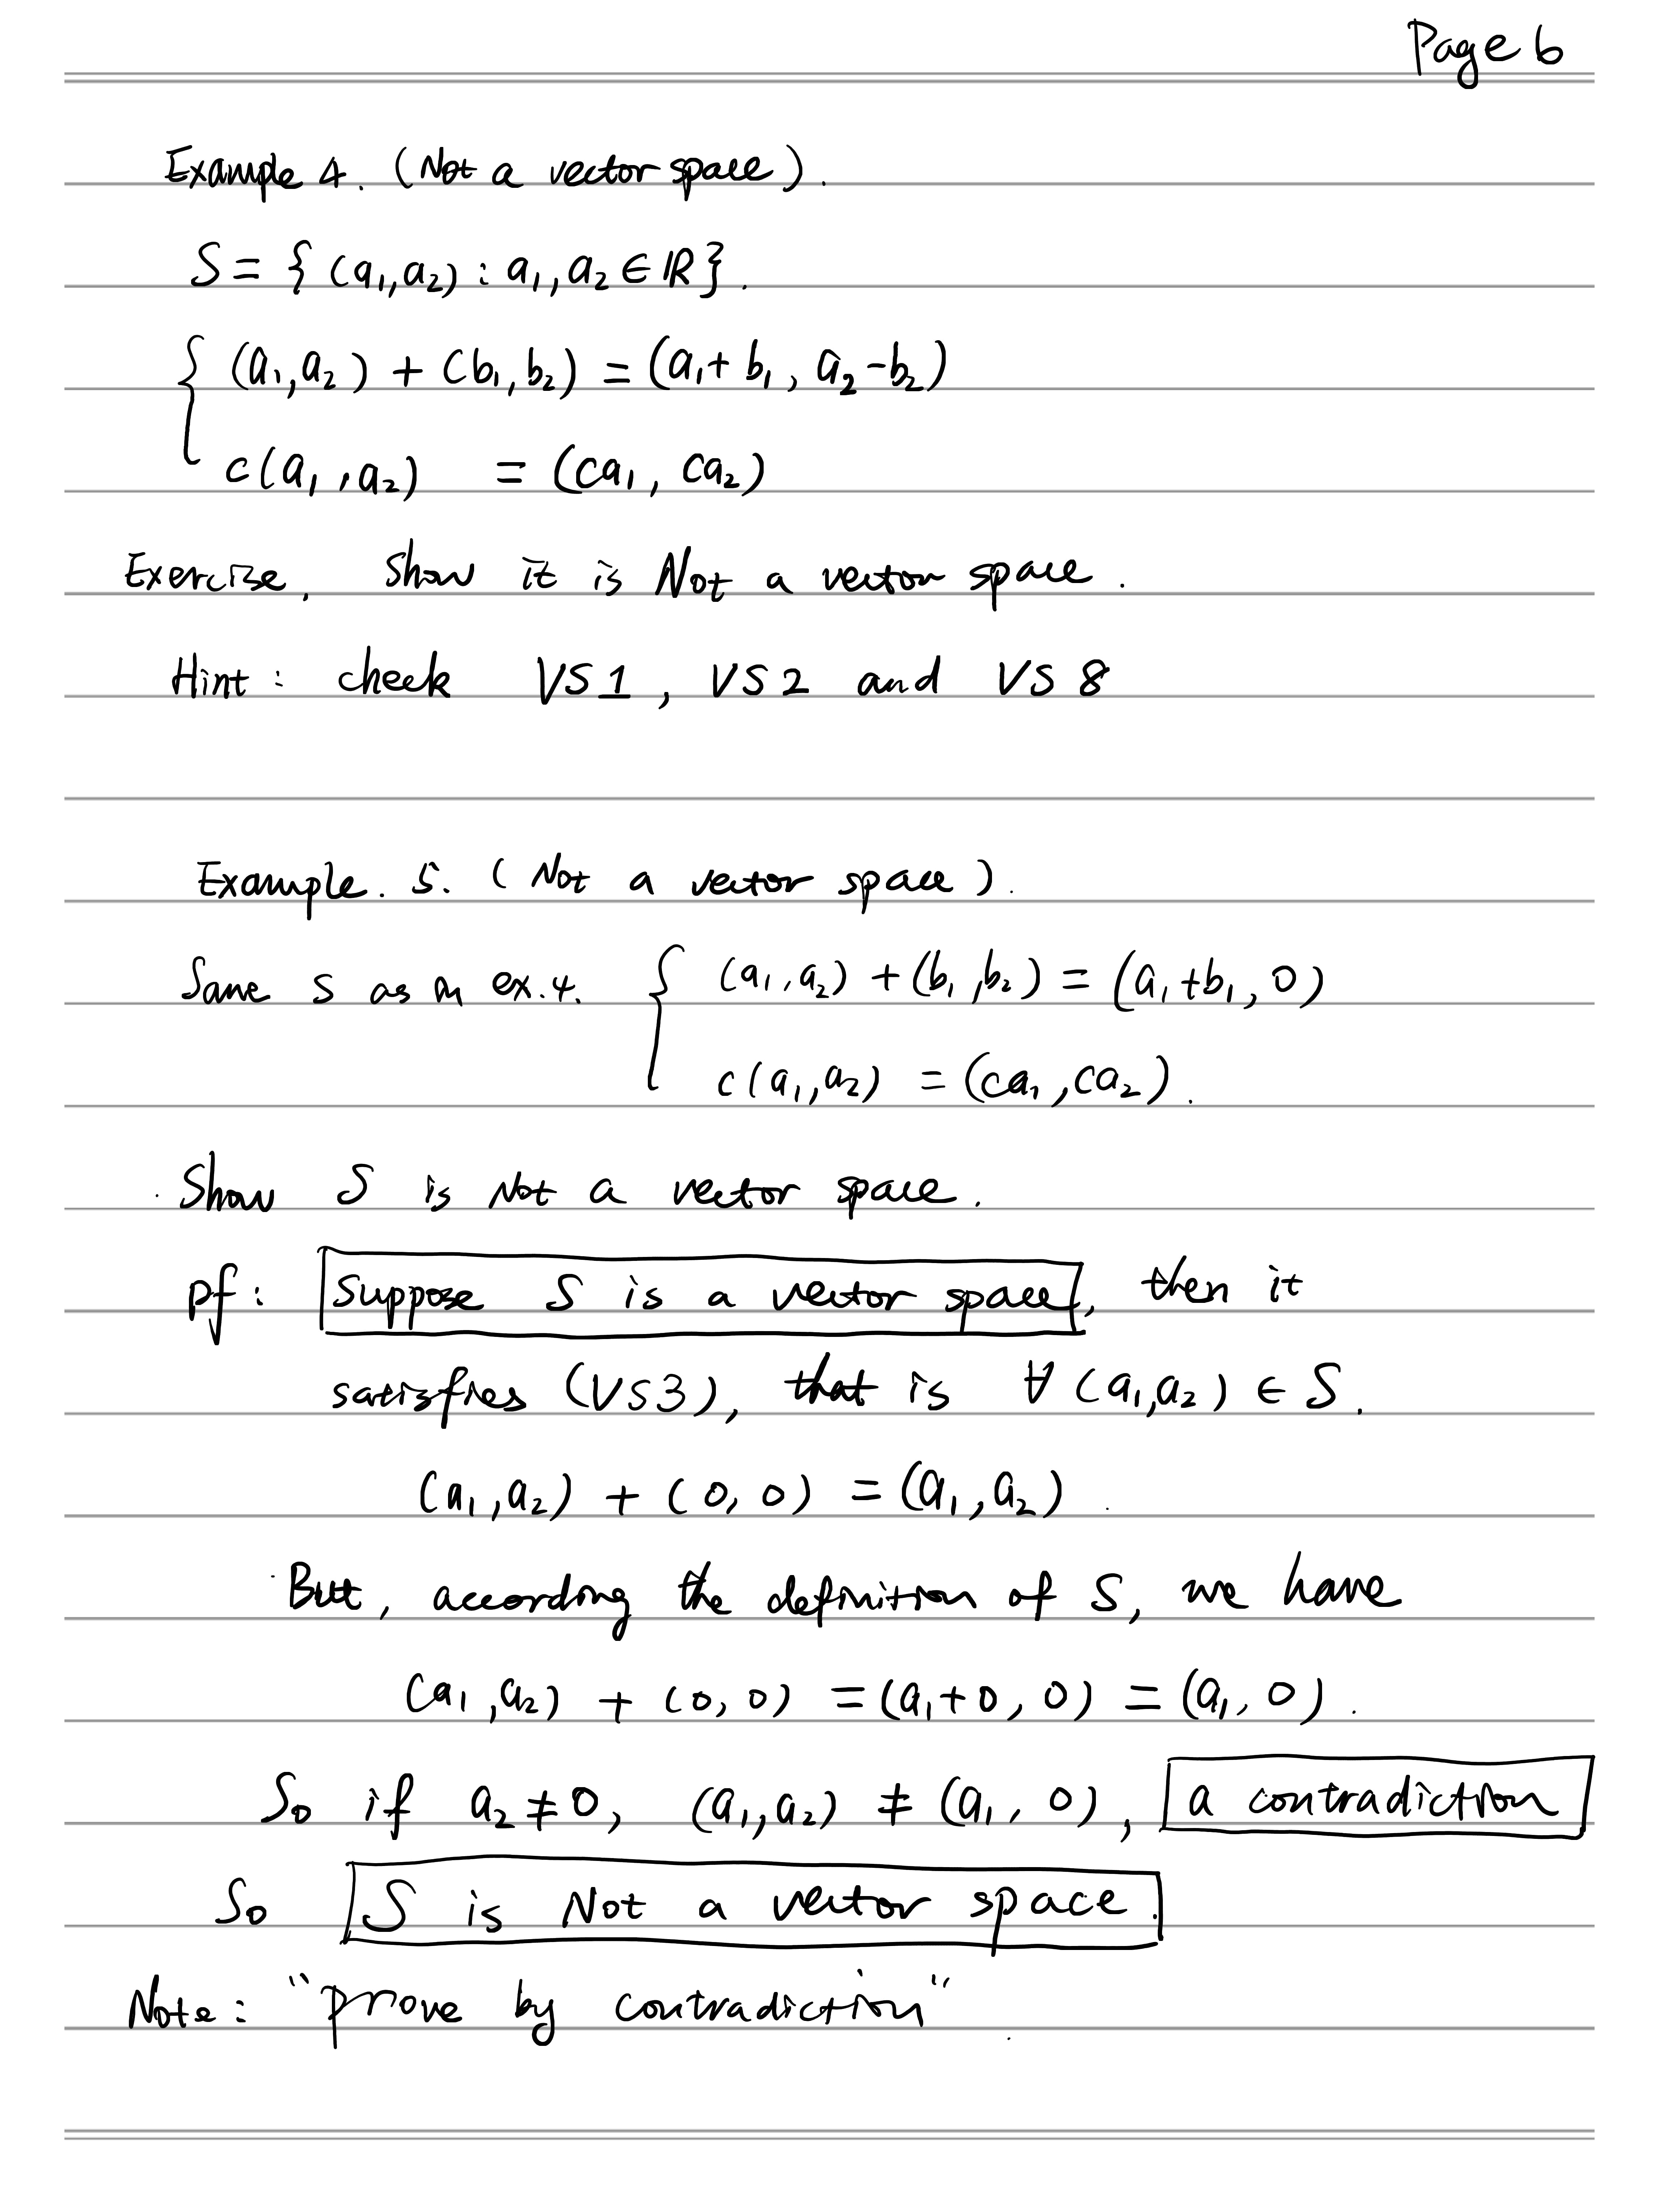 Page 6
Example 4. (Not a vector space).
S = { (a₁,a₂) : a₁, a₂ ∈ ℝ}.
{ (a₁,a₂) + (b₁,b₂) = (a₁+b₁, a₂-b₂)
c(a₁,a₂) = (ca₁, ca₂)
Exercise, Show it is Not a vector space.
Hint: check VS1, VS2 and VS8
Example. 5. (Not a vector space).
Same S as in ex.4. { (a₁,a₂) + (b₁,b₂) = (a₁+b₁, 0)
c(a₁,a₂) = (ca₁, ca₂).
Show S is Not a vector space.
pf: Suppose S is a vector space, then it
satisfies (VS3), that is ∀ (a₁,a₂) ∈ S.
(a₁,a₂) + (0,0) = (a₁,a₂)
But, according the definition of S, we have
(a₁,a₂) + (0,0) = (a₁+0, 0) = (a₁, 0).
So if a₂≠0, (a₁,a₂) ≠ (a₁, 0), a contradiction
So S is Not a vector space.
Note: "prove by contradiction"